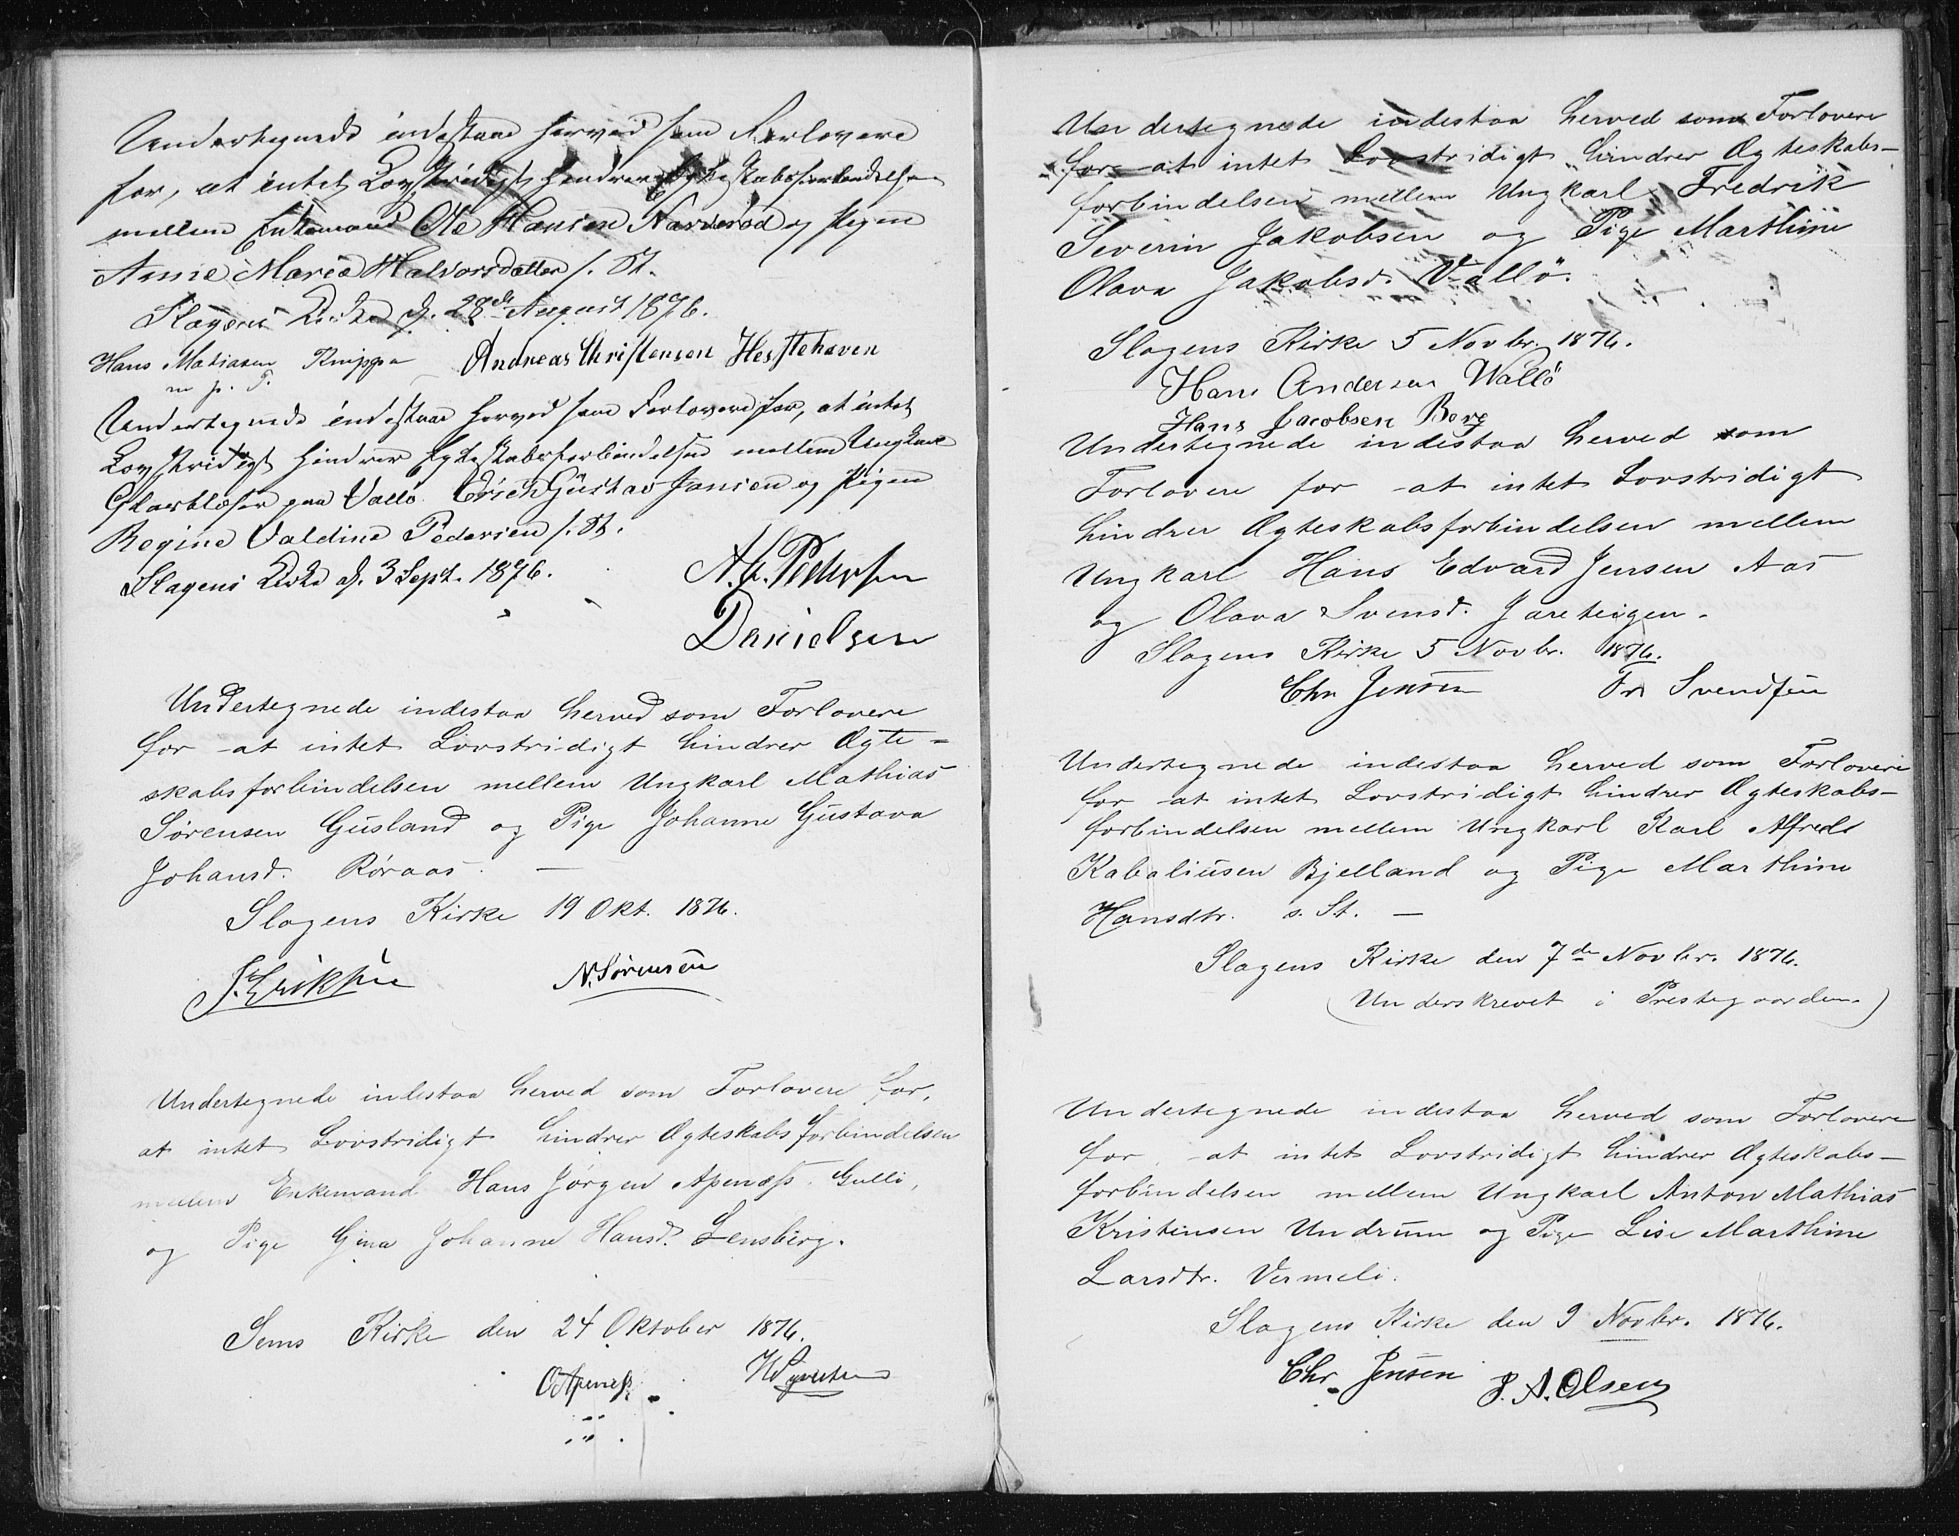 Undertegnede indestaae herved som Forlovere
for, at intet Lovstridigt hindrer Egteskabsforbindelsen
mellem Enkemand Ole Hansen Narverød og Pigen
Anne Maria Halvorsdatter s. St.
Slagens Kirke d. 28de August 1876.
Hans Matiasen Knippa Andreas Christensen Hesstehaven
m p. F.
Undertegnede indestaae herved som Forlovere for, at intet
Lovstridigt hindrer Egteskabsforbindelsen mellem Ungkarl
Glasblæser paa Vallø Erich Gustav Jansen og Pigen
Regine Valdine Pedersen s. St.
Slagens Kirke d. 3 Sept. 1876.
A. G. Pedersen
Danielsen
Undertegnede indestaa herved som Forlovere
for at intet Lovstridigt hindrer Ægte-
skabsforbindelsen mellem Ungkarl Mathias
Sørensen Gusland og Pige Johanne Gustava
Johansd. Røraas. —
Slagens Kirke 19 Okt. 1876.
J. Eriksen N. Sørensen
Undertegnede indestaa herved som Forlovere for,
at intet Lovstridigt hindrer Ægteskabsforbindelsen
mellem Enkemand Hans Jørgen Apenæss Gulli,
og Pige Gina Johanne Hansd. Lensberg.
Sems Kirke den 24 Oktober 1876.
O Apeness H Syvertsen
Undertegnede indestaa herved som Forlovere
for at intet Lovstridigt hindrer Ægteskabs-
forbindelsen mellem Ungkarl Fredrik
Severin Jakobsen og Pige Marthine
Olava Jakobsd. Vallø.
Slagens Kirke 5 Novbr. 1876.
Hans Andersen Wallö
Hans Jacobsen Berg
Undertegnede indestaa herved som
Forlovere for at intet Lovstridigt
hindrer Ægteskabsforbindelsen mellem
Ungkarl Hans Edvard Jensen Aas
og Olava Svensd. Jareteigen.
Slagens Kirke 5 Novbr. 1876.
Chr Jensen Fr Svendsen
Undertegnede indestaa herved som Forlovere
for at intet Lovstridigt hindrer Ægteskabs-
forbindelsen mellem Ungkarl Karl Alfred
Kabeliusen Bjelland og Pige Marthine
Hansdtr. s. St. —
Slagens Kirke den 7de Novbr. 1876.
(Underskrevet i Prestegaarden.)
Undertegnede indestaa herved som Forlovere
for, at intet Lovstridigt hindrer Ægteskabs-
forbindelsen mellem Ungkarl Anton Mathias
Kristensen Undrum og Pige Lise Marthine
Larsdtr. Vermeli.
Slagens Kirke den 9 Novbr. 1876.
Chr Jensen H. A. Olsen